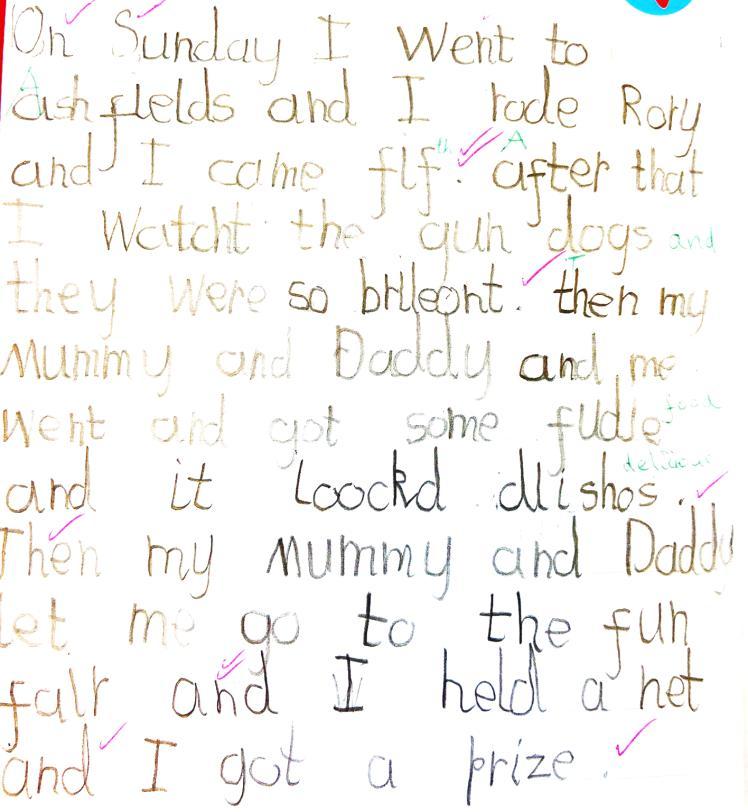 On Sunday I Went to
A
ashfields and I rode Rory
and I came fif th. A after that
I Watcht the gun dogs and
they were so brileont. T then my
Mummy and Daddy and me
went and got some fudle food
delicious
and it Loockd dlishos.
Then my Mummy and Daddy
let me go to the fun
fair and I held a net
and I got a prize.